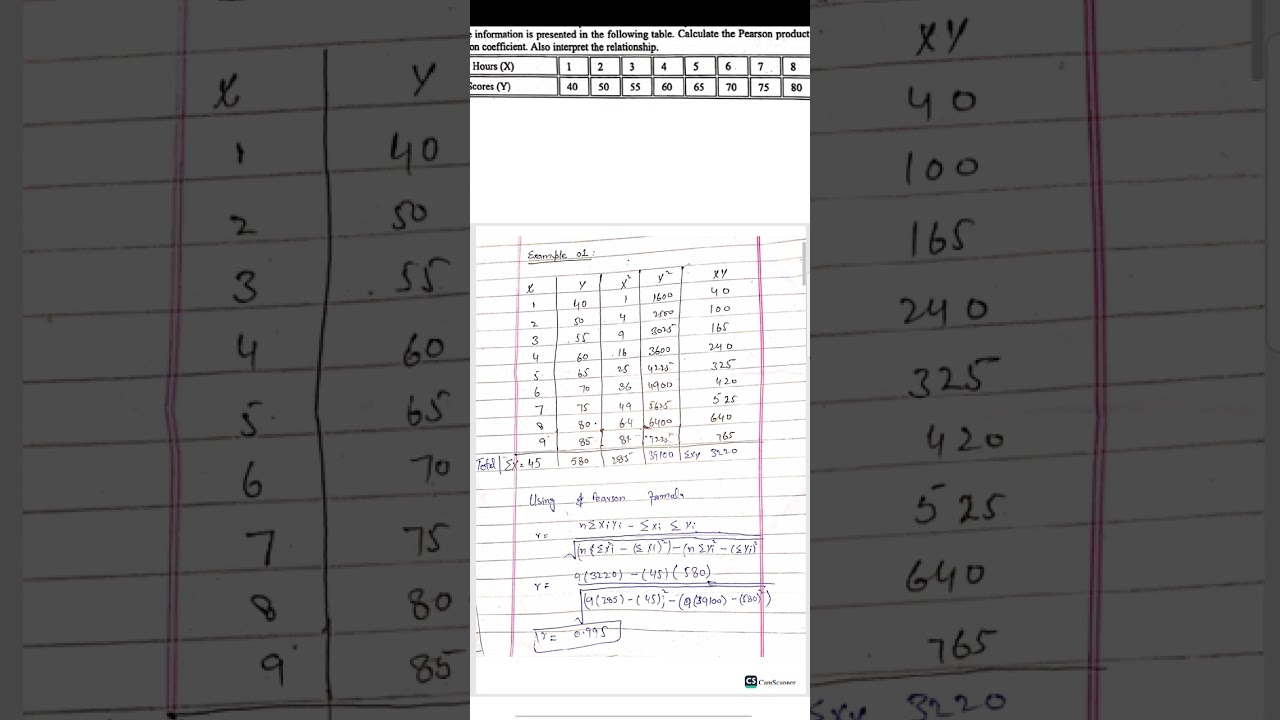 e information is presented in the following table. Calculate the Pearson product
on coefficient. Also interpret the relationship.
Hours (X) 1 2 3 4 5 6 7 8
Scores (Y) 40 50 55 60 65 70 75 80
Example 01:
X Y X² Y² XY
1 40 1 1600 40
2 50 4 2500 100
3 55 9 3025 165
4 60 16 3600 240
5 65 25 4225 325
6 70 36 4900 420
7 75 49 5625 525
8 80 64 6400 640
9 85 81 7225 765
Total Σx = 45 580 285 39100 Σxy 3220
Using of Pearson Formula
r = nΣxiyi - Σxi Σyi
√(nΣxi² - (Σxi)²) - (nΣyi² - (Σyi)²
r = 9(3220) - (45)(580)
√(9(285) - (45)² - (9(39100) - (580)²)
r = 0.995
CS CamScanner
X Y
1 40
2 50
3 55
4 60
5 65
6 70
7 75
8 80
9 85
XY
40
100
165
240
325
420
525
640
765
Σxy 3220